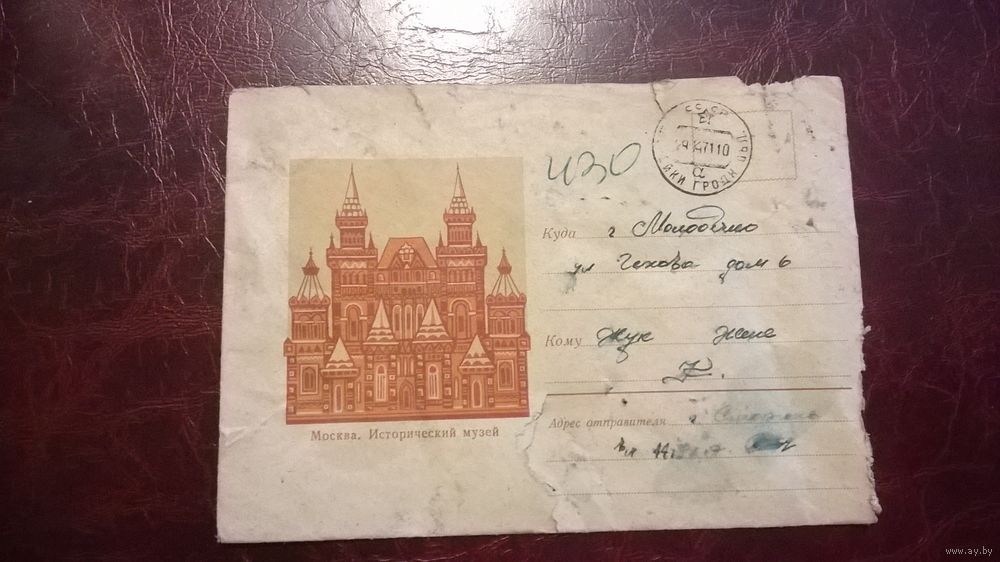 СССР
71 10
430
Куда г Молодечно
ул Чехова дом 6
Кому Жук Жене
Адрес отправителя г.
Москва. Исторический музей
www.ay.by